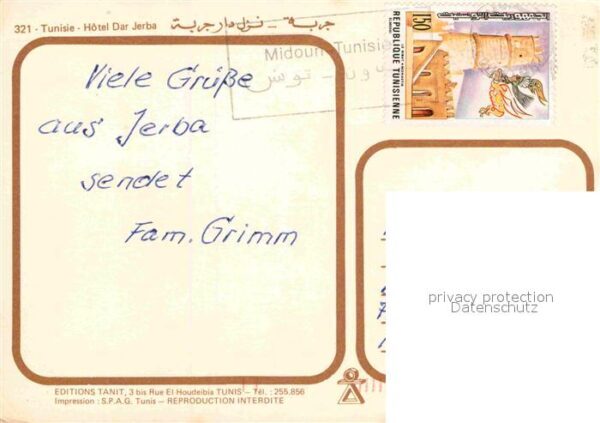 321 - Tunisie - Hôtel Dar Jerba جربة - نزل دار جربة
Midoun Tunisie
تونس
150
REPUBLIQUE TUNISIENNE
Viele Grüße
aus Jerba
sendet
Fam. Grimm
privacy protection
Datenschutz
EDITIONS TANIT, 3 bis Rue El Houdeibia TUNIS - Tél. : 255.856
Impression : S.P.A.G. Tunis - REPRODUCTION INTERDITE